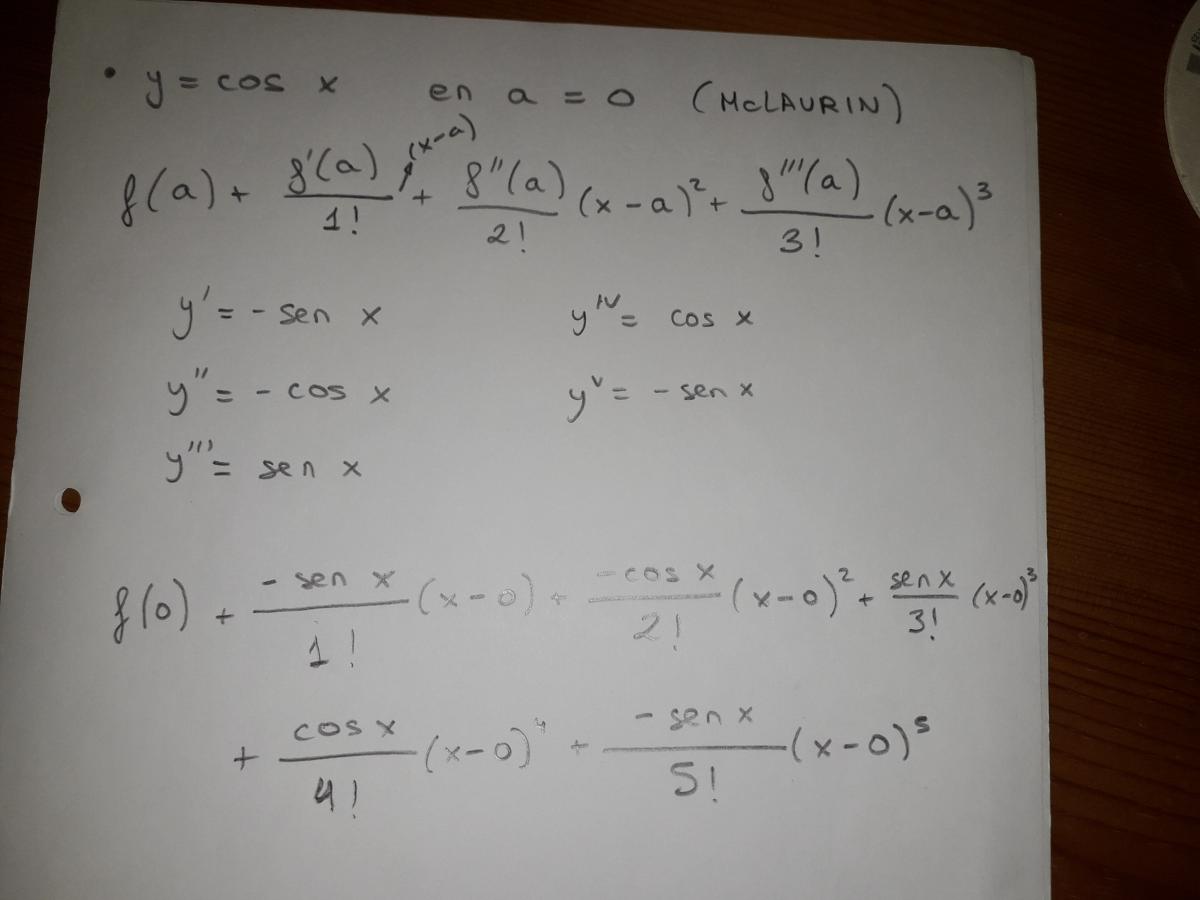 • y = cos x en a = 0 (McLAURIN)
f(a) + f'(a)/1! (x-a) + f''(a)/2! (x-a)² + f'''(a)/3! (x-a)³
y' = - sen x y^IV = cos x
y'' = - cos x y^V = - sen x
y''' = sen x
f(0) + - sen x/1! (x-0) + -cos x/2! (x-0)² + sen x/3! (x-0)³
+ cos x/4! (x-0)⁴ + - sen x/5! (x-0)⁵